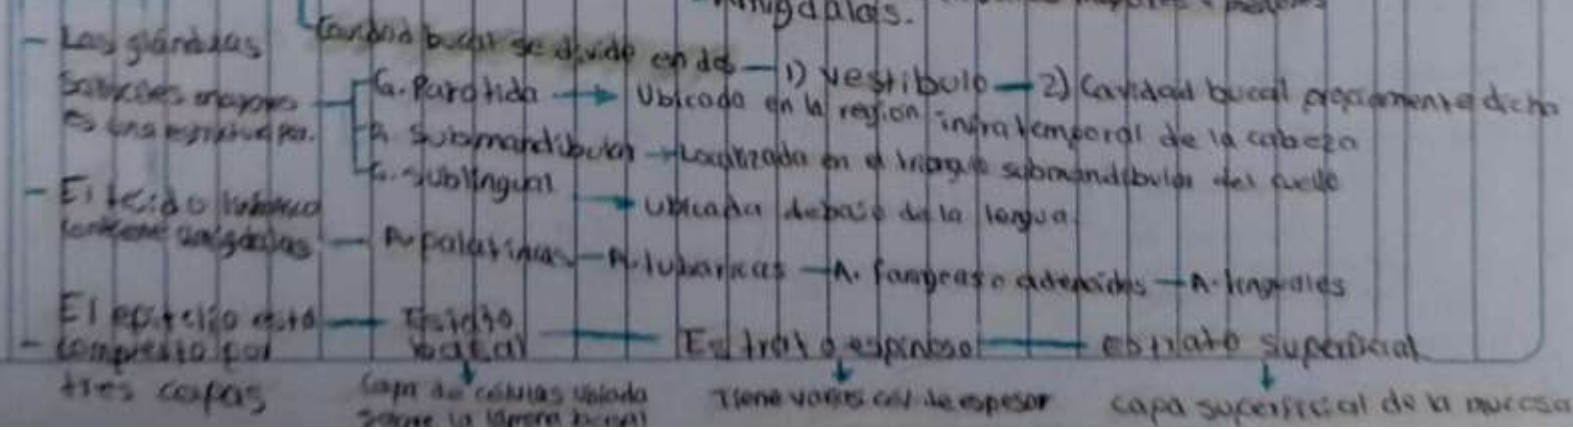 amígdalas.
Cavidad bucal se divide en dos — 1) vestibulo — 2) Cavidad bucal propiamente dicha
- Las glándulas
salivales mayores
es una estructura por.
G. Parotida → Ubicada en la region infratemporal de la cabeza
G. Submandibular → Localizada en el triangulo submandibular del cuello
G. sublingual → Ubicada debajo de la lengua
- El tejido
contiene amigdalas — A. palatinas — A. tubaricas — A. faringeas o adenoides — A. linguales
- El epitelio está
compuesto por
tres capas
Estrato
basal — Estrato espinoso — estrato superficial
Capa de células ubicada
sobre la lámina basal
Tiene varias cél de espesor
capa superficial de la mucosa